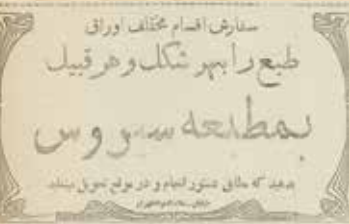 سفارش اقسام مختلف اوراق
طبع را بهر شکل و هر قبیل
بمطبعه سیروس
بدهید که مطابق دستور انجام و در موقع تحویل مینماید